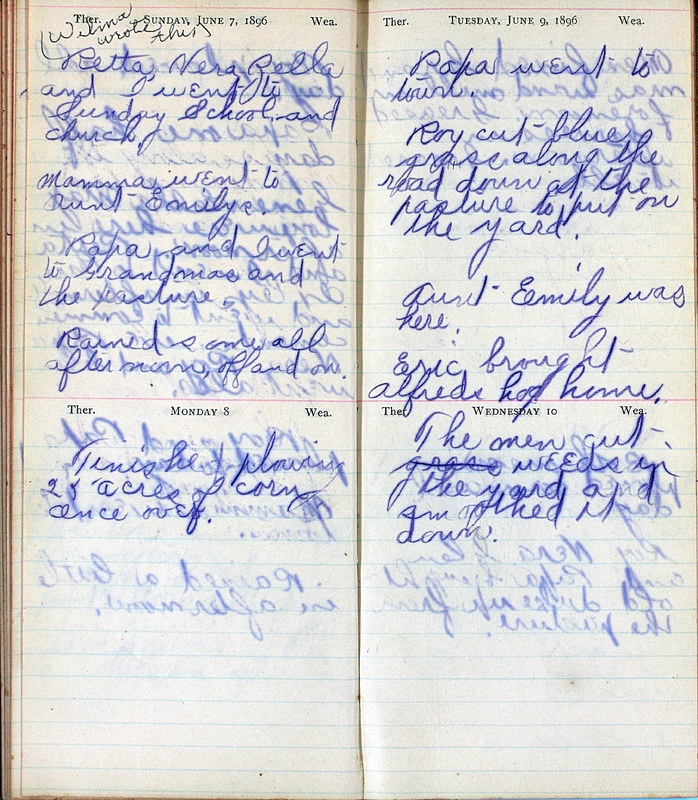 Ther. SUNDAY, JUNE 7, 1896 Wea.
(Wilma
wrote this)
Retta, Vera Rella
and I went to
Sunday School, and
church.
Mamma went to
Aunt Emilys.
Papa and I went
to Grandmas and
the pasture.
Rained some all
afternoon, off and on.
Ther. MONDAY 8 Wea.
Finished plowing
25 acres of corn
once over.
Ther. TUESDAY, JUNE 9, 1896 Wea.
Papa went to
town.
Roy cut blue
grass along the
road down at the
pasture to put on
the yard.
Aunt Eemily was
here.
Eric brought
alfreds hog home.
Ther. WEDNESDAY 10 Wea.
The men cut
grass weeds in
the yard and
smothed it
down.